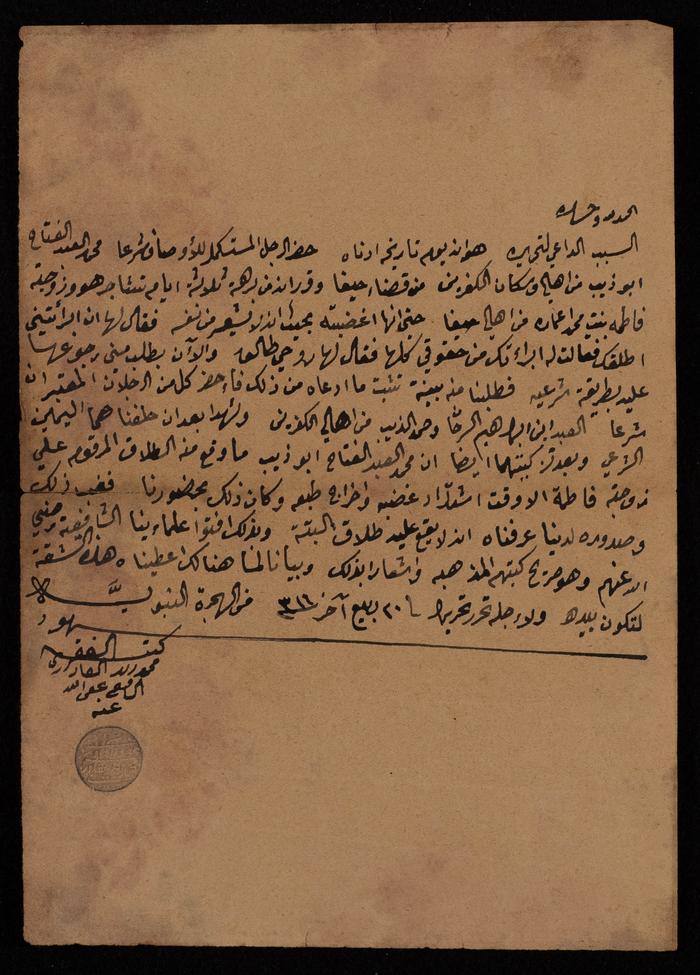 الحمد لله وحده
السبب الداعي لتحريره هو انه يوم تاريخه ادناه حضر الرجل المستكمل للأوصاف شرعا محمد العبد الفتاح
ابو ذيب من اهالي وسكان الكفرين من قضاء حيفا وقرر انه من برهة ثلاثة ايام تشاجر هو وزوجته
فاطمه بنت محمد اعماره من اهالي حيفا حتى انها اغضبته بحيث انه لا يشعر من نفسه فقال لها ان ابرأتيني
اطلقك فقالت له ابرأتك من حقوقي كلها فقال لها روحي طالعه والآن يطلب مني رجوعها
عليه بطريقة شرعيه فطلبنا منه بينة تثبت ما ادعاه من ذلك فأحضر كل من الرجلان المعتبران
شرعا العبد ابن ابراهيم وحمد الذيب من اهالي الكفرين وشهدا بعد ان حلفنا هما اليمين
الشرعي وبعد تزكيتهما ايضا ان محمد العبد الفتاح ابو ذيب ما وقع منه الطلاق المرقوم على
زوجته فاطمة الا وقت اشتداد غضبه واخراج طبعه وكان ذلك بحضورنا فغب ذلك
وصدوره لدينا عرفناه انه لا يقع عليه طلاق البتة وبذلك افتوا علماءينا الشافعية رضي
الله عنهم وهو صريح كتبهم المذهبيه واشعارا بذلك وبيانا لما هنالك اعطيناه هذه الشقة
لتكون بيده ولاجله تحرر تحريرا في ٢٠ ربيع آخر ٣١٦ من الهجرة النبويَّة
كتبه الفقير
القادري
عفى الله
عنه